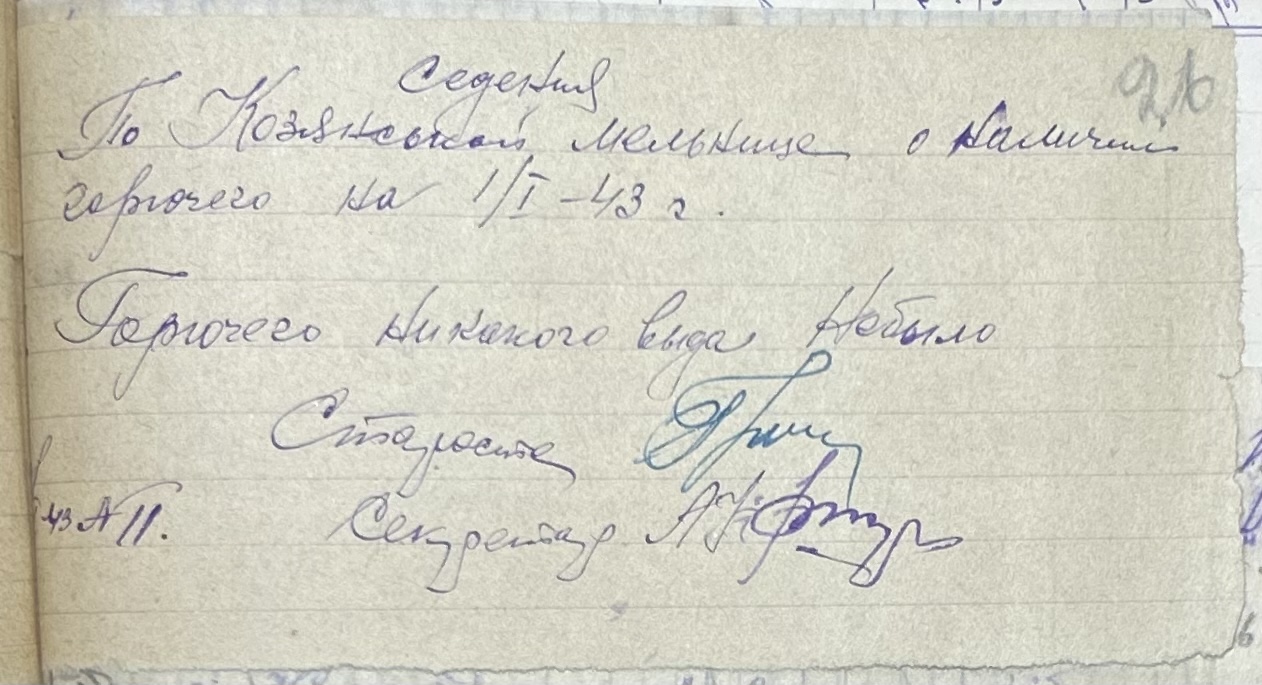 26
Седения
По Козянськой мельнице о наличии
горючего на 1/I-43 г.
Горючего никакого выда небыло
Староста
43 А II. Секретар